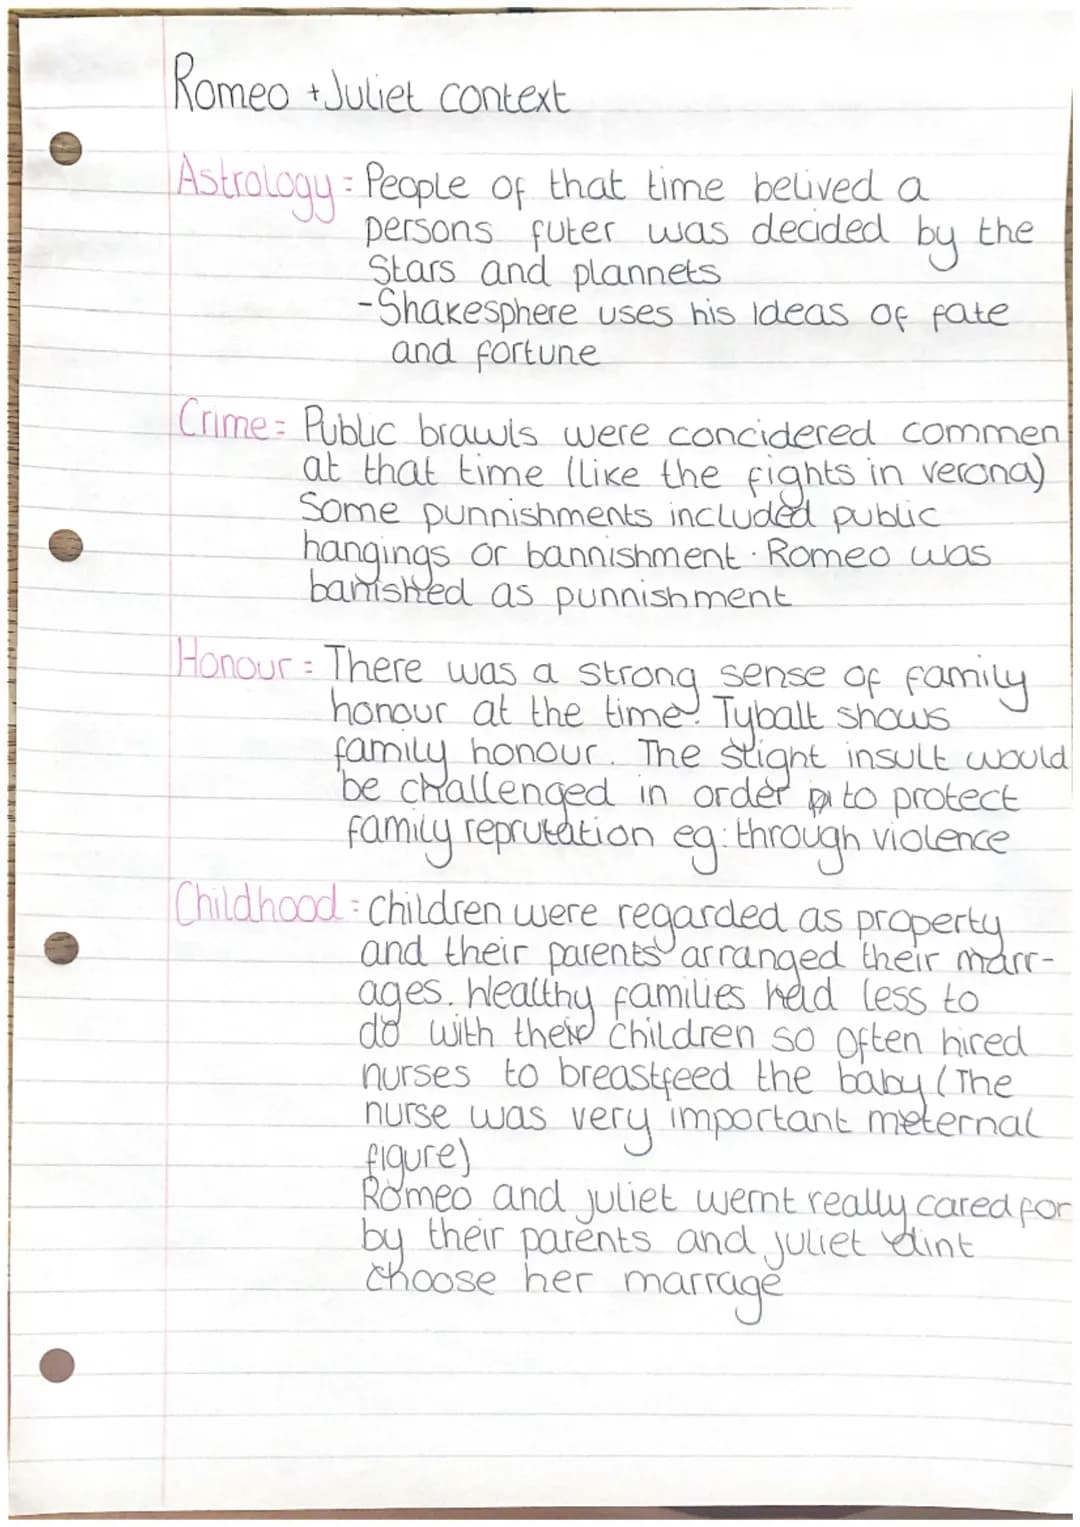 Romeo + Juliet context
Astrology = People of that time belived a
persons futer was decided by the
Stars and plannets
-Shakesphere uses his ideas of fate
and fortune
Crime = Public brawls were concidered commen
at that time (like the fights in verona)
Some punnishments included public
hangings or bannishment. Romeo was
banished as punnishment
Honour = There was a strong sense of family
honour at the time. Tybalt shows
family honour. The slight insult would
be challenged in order to protect
family reprutation eg: through violence
Childhood = Children were regarded as property
and their parents arranged their marr-
ages. Wealthy families had less to
do with their children so often hired
nurses to breastfeed the baby (The
nurse was very important meternal
figure)
Romeo and juliet wernt really cared for
by their parents and juliet dint
choose her marrage